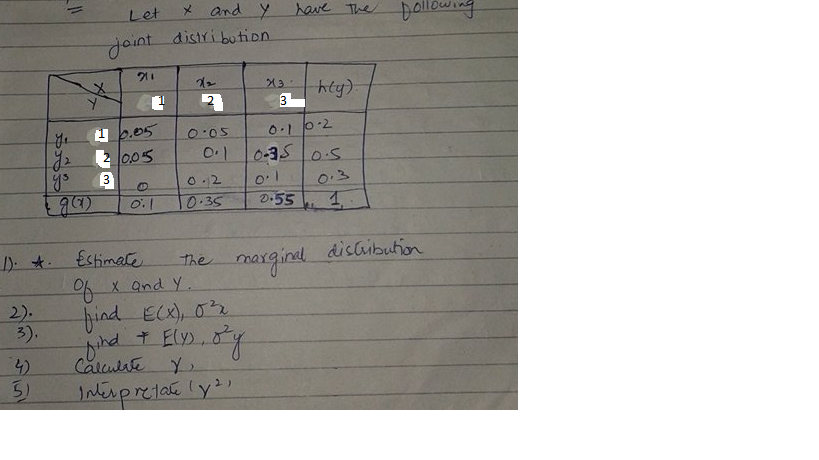 = Let x and y have the following
joint distribution
X Y x1 1 x2 2 x3 3 h(y)
y1 1 0.05 0.05 0.1 0.2
y2 2 0.05 0.1 0.35 0.5
y3 3 0 0.12 0.1 0.3
g(x) 0.1 0.35 0.55 1
1). * Estimate the marginal distribution
Of x and Y.
2). find E(X), σ²x
3). find E(Y), σ²y
4) Calculate r,
5) Interpretate (r²)